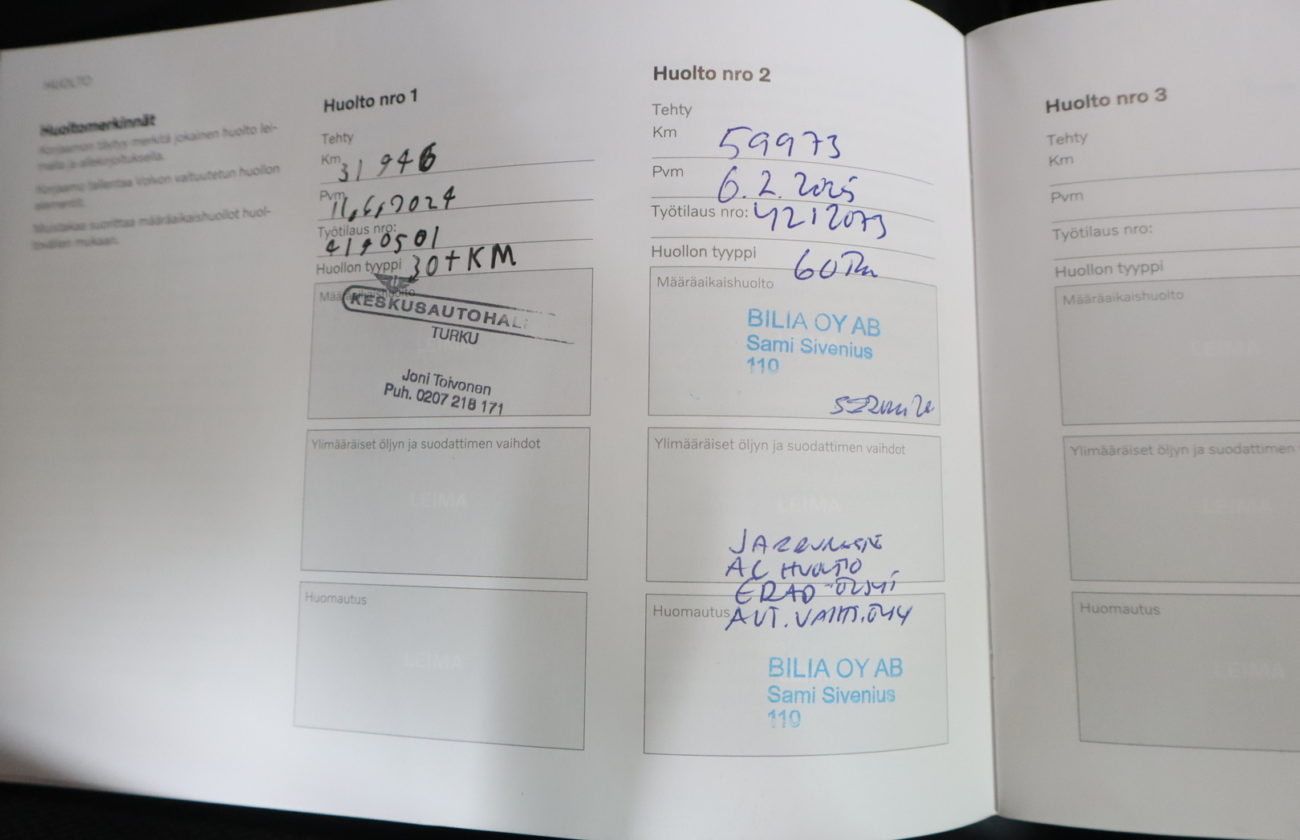 HUOLTO
Huoltomerkinnät
Korjaamon täytyy merkitä jokainen huolto lei-
malla ja allekirjoituksella.
Korjaamo tallentaa Volvon valtuutetun huollon
elementit.
Muistakaa suorittaa määräaikaishuollot huol-
tovälien mukaan.
Huolto nro 1
Tehty
Km 31 946
Pvm 11.6.2024
Työtilaus nro:
4190501
Huollon tyyppi 30+KM
Määräaikaishuolto
KESKUSAUTOHAL
TURKU
Joni Toivonen
Puh. 0207 218 171
Ylimääräiset öljyn ja suodattimen vaihdot
LEIMA
Huomautus
LEIMA
Huolto nro 2
Tehty
Km 59973
Pvm 6.2.2025
Työtilaus nro: 4212073
Huollon tyyppi
Määräaikaishuolto
BILIA OY AB
Sami Sivenius
110
Ylimääräiset öljyn ja suodattimen vaihdot
LEIMA
JARRUNESTE
AC HUOLTO
ERAD ÖLJYT
Huomautus AUT. VAIHT. ÖLJY
BILIA OY AB
Sami Sivenius
110
Huolto nro 3
Tehty
Km
Pvm
Työtilaus nro:
Huollon tyyppi
Määräaikaishuolto
LEIMA
Ylimääräiset öljyn ja suodattimen
LEIMA
Huomautus
LEIMA